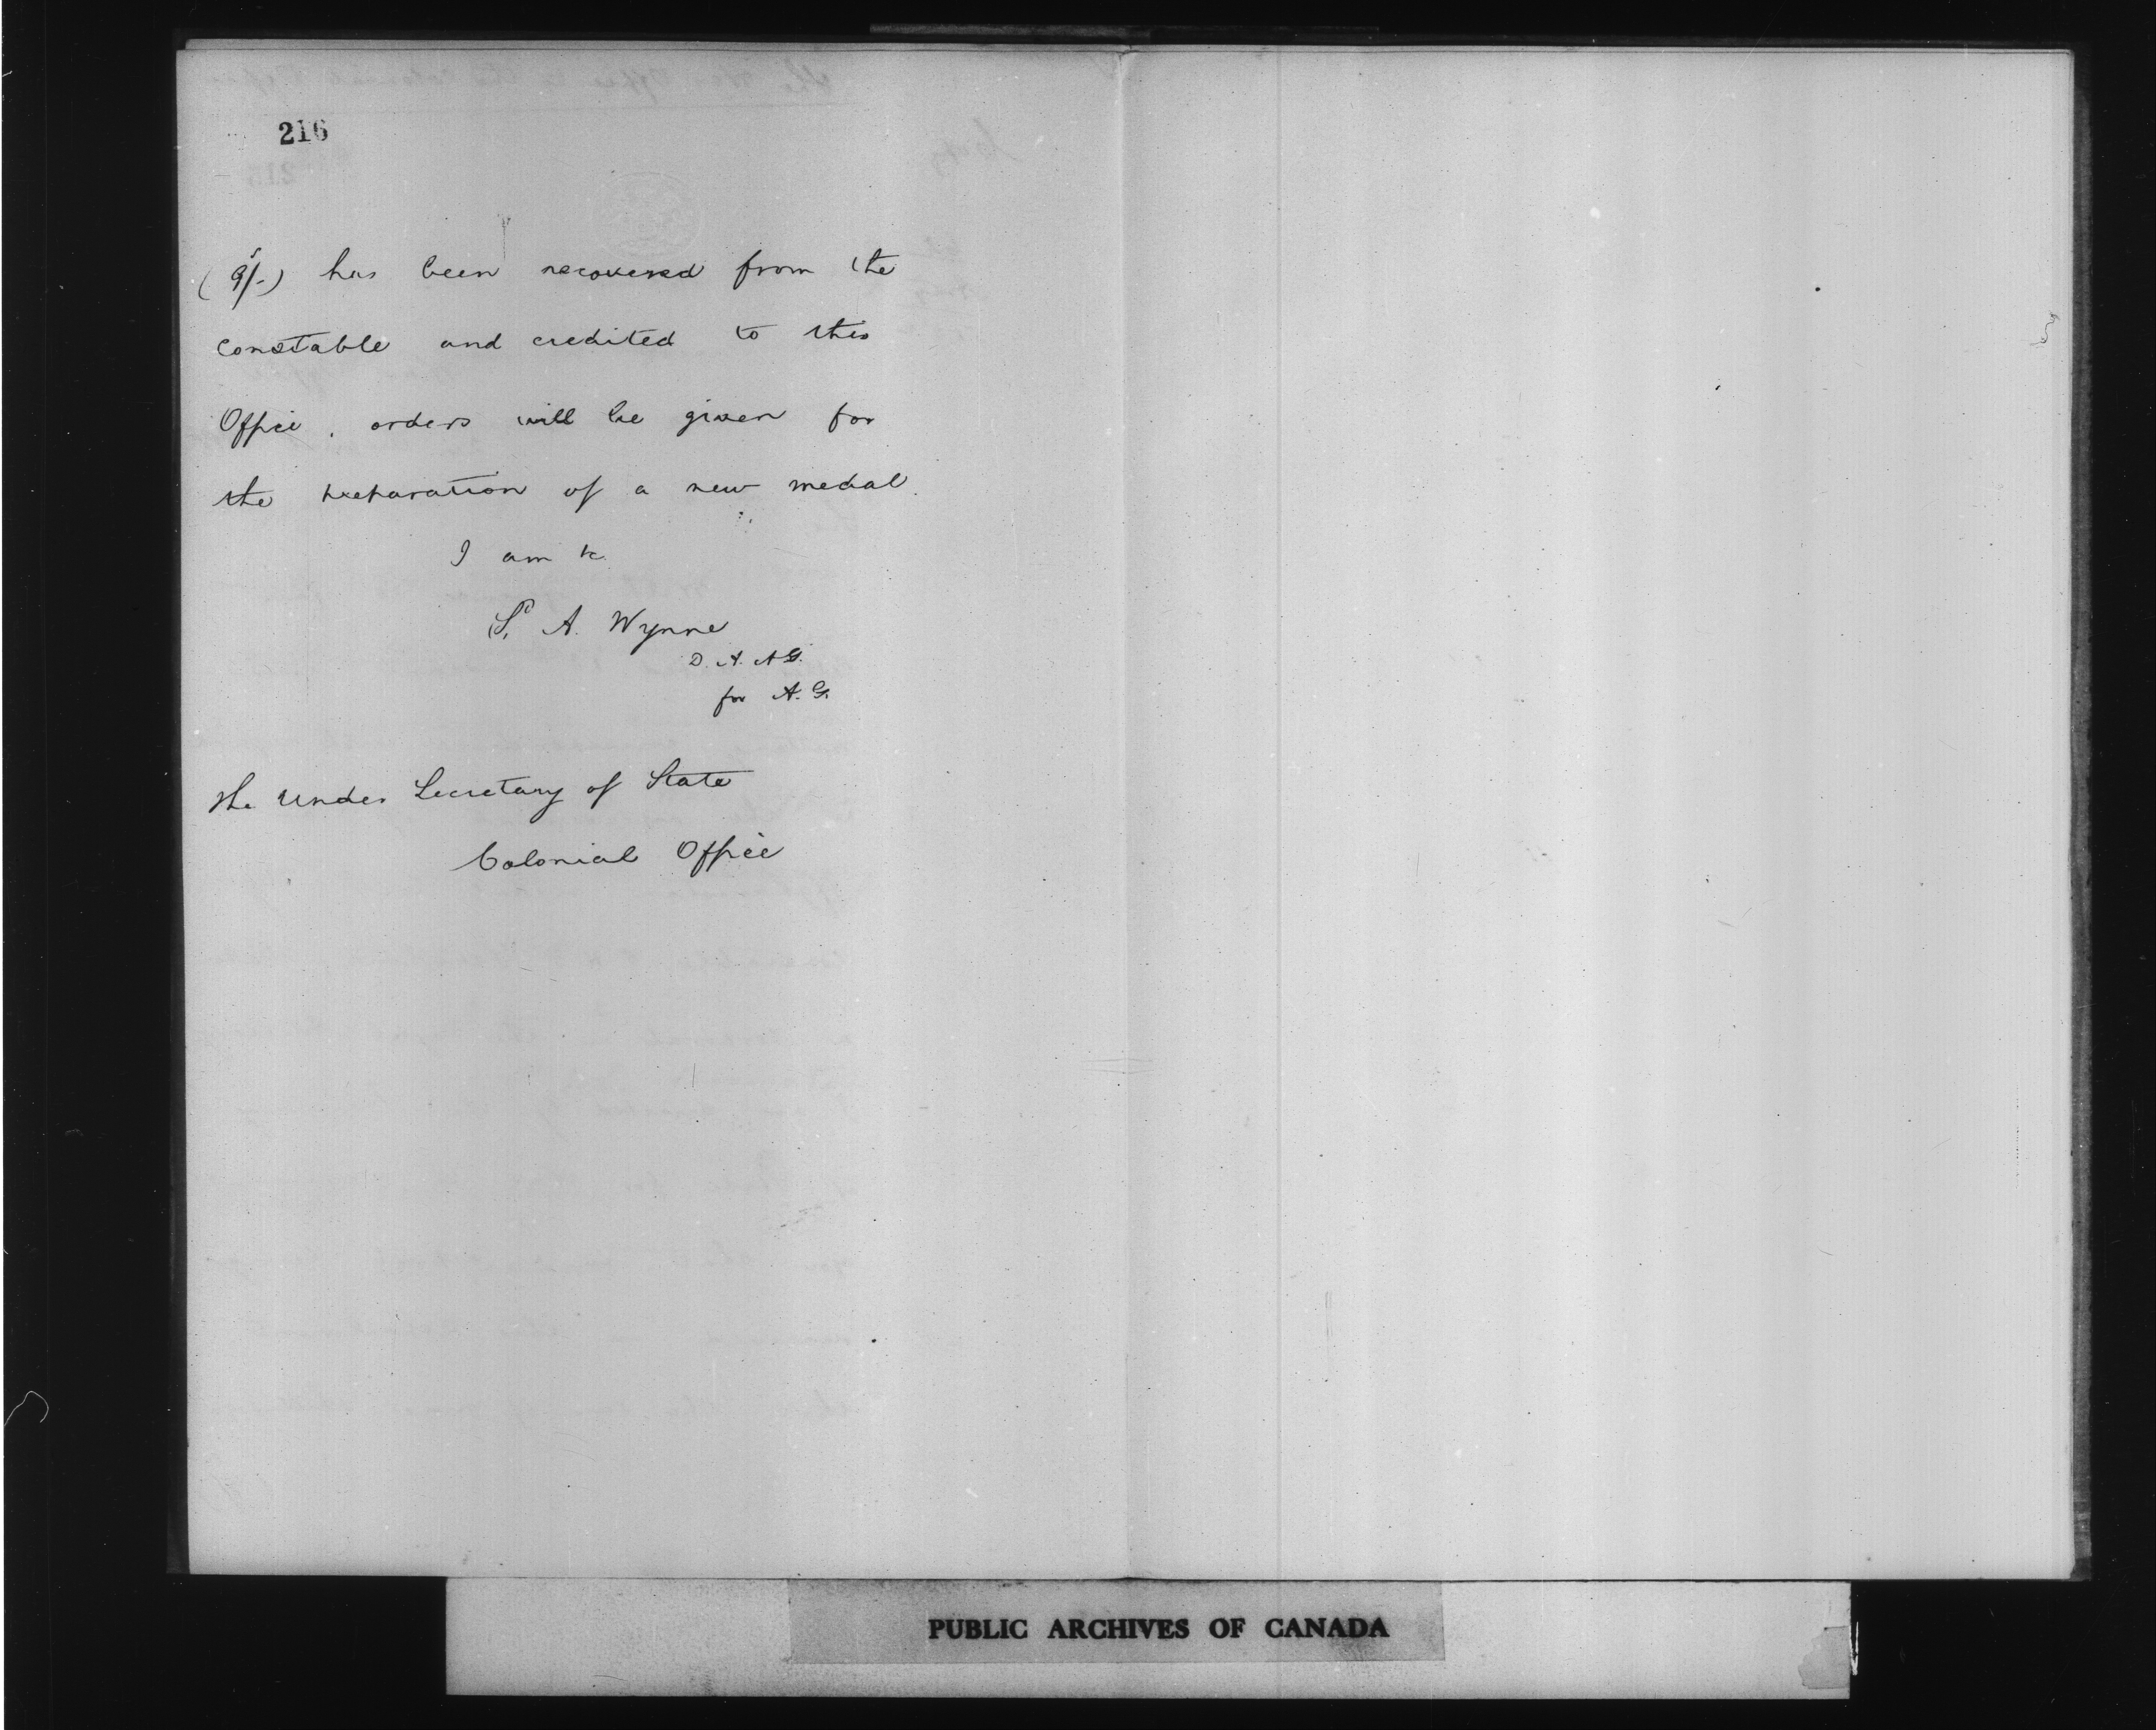 216
(9/-) has been recovered from the
constable and credited to this
Office, orders will be given for
the preparation of a new medal.
I am &c.
A. Wynne
D. A. A. G.
for A. G.
The Under Secretary of State
Colonial Office
PUBLIC ARCHIVES OF CANADA